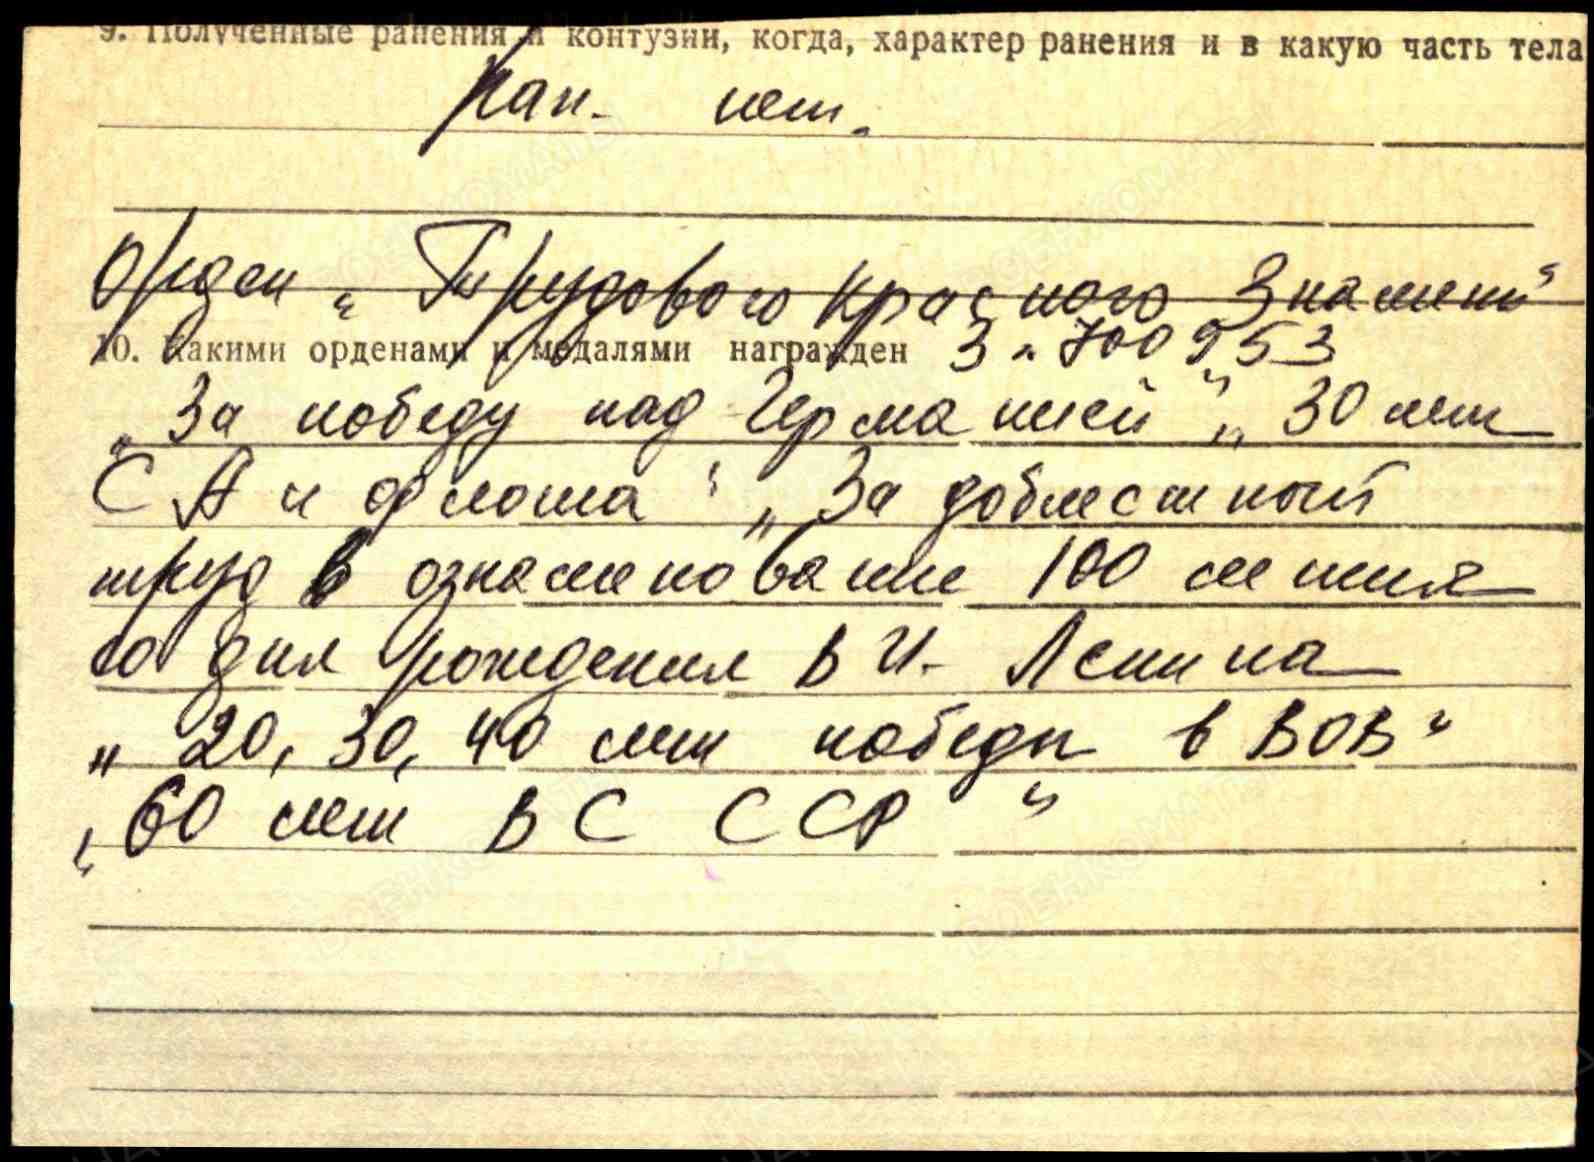 9. Полученные ранения и контузии, когда, характер ранения и в какую часть тела
Ран. нет.
Орден „Трудового Красного Знамени“
10. Какими орденами и медалями награжден З N 700953
„За победу над Германией“, „30 лет
СА и флота“ „За доблестный
труд в ознаменование 100 летия
со дня рождения В И. Ленина
„20, 30, 40 лет победы в ВОВ“
„60 лет ВС СССР“